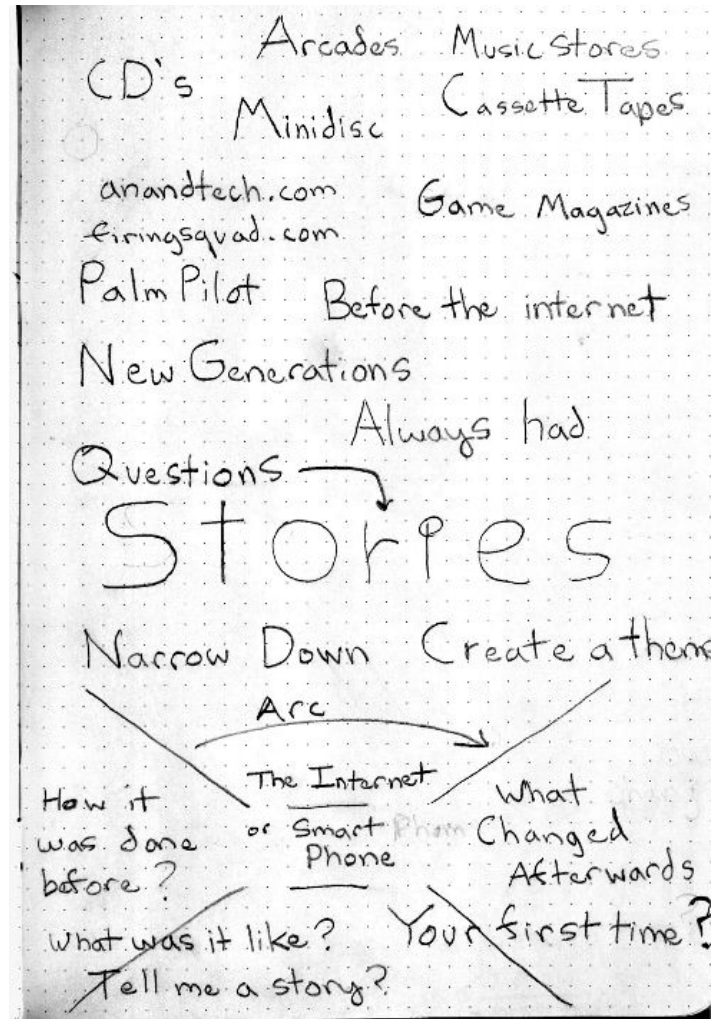 Arcades Music Stores
CD's
Minidisc Cassette Tapes
anandtech.com
firingsquad.com
Game Magazines
Palm Pilot Before the internet
New Generations
Always had
Questions
Stories
Narrow Down Create a theme
Arc
The Internet
or Smart Phone
Phone
How it
was done
before?
What
Changed
Afterwards
What was it like?
Tell me a story?
Your first time?